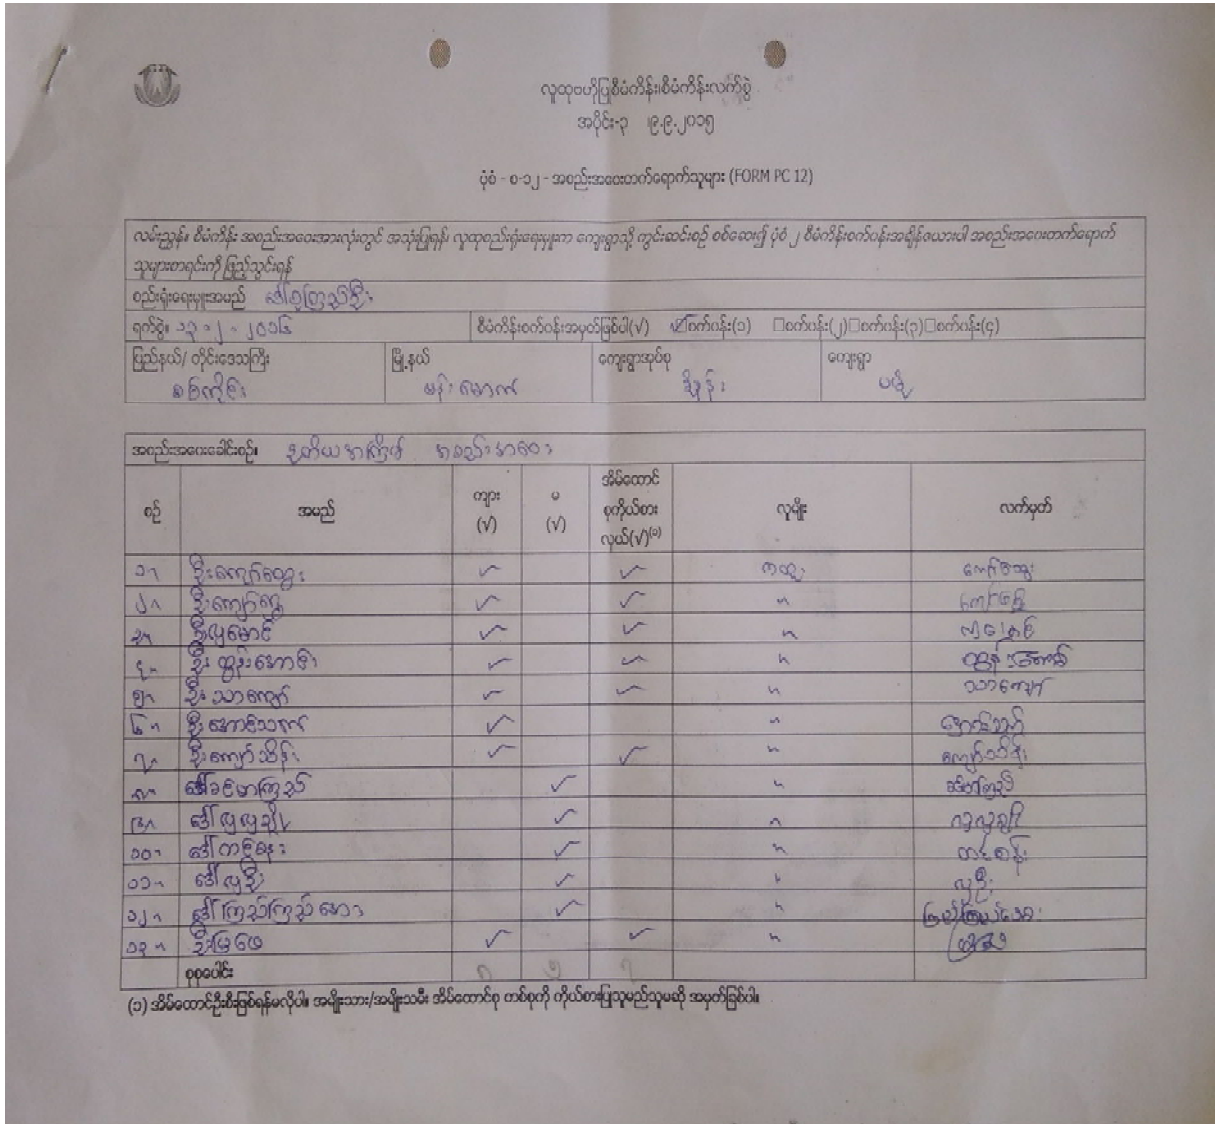 လူထုဗဟိုပြုစီမံကိန်း၊စီမံကိန်းလက်စွဲ
အပိုင်း-၃ ၊၉.၉.၂၀၁၅
ပုံစံ - စ-၁၂ - အစည်းအဝေးတက်ရောက်သူများ (FORM PC 12)
လမ်းညွှန်။ စီမံကိန်း အစည်းအဝေးအားလုံးတွင် အသုံးပြုရန်၊ လူထုစည်းရုံးရေးမှူးက ကျေးရွာသို့ ကွင်းဆင်းစဉ် စစ်ဆေး၍ ပုံစံ ၂ စီမံကိန်းစက်ဝန်းအချိန်ဇယားပါ အစည်းအဝေးတက်ရောက်
သူများစာရင်းကို ဖြည့်သွင်းရန်
စည်းရုံးရေးမှူးအမည်
ရက်စွဲ။ ၁၃-၂-၂၀၁၆ စီမံကိန်းစက်ဝန်းအမှတ်ဖြစ်ပါ(√) ☑စက်ဝန်း(၁) □စက်ဝန်း(၂)□စက်ဝန်း(၃)□စက်ဝန်း(၄)
ပြည်နယ်/ တိုင်းဒေသကြီး မြို့နယ် ကျေးရွာအုပ်စု ကျေးရွာ
စစ်ကိုင်း ဗန်းမောက်
အစည်းအဝေးခေါင်းစဉ်။ ဒုတိယအကြိမ် အစည်းအဝေး
စဉ် အမည် ကျား (√) မ (√) အိမ်ထောင်စုကိုယ်စားလှယ်(√)⁽¹⁾ လူမျိုး လက်မှတ်
၁။ ဦးကျော်ထွေး ✓ ✓ ကထူး ကျော်ထွေး
၂။ ဦးကျော်ရွှေ ✓ ✓ "
၃။ ဦးလှမောင် ✓ ✓ " လှမောင်
၄။ ဦးထွန်းအောင် ✓ ✓ " ထွန်းအောင်
၅။ ဦးသာကျော် ✓ ✓ " သာကျော်
၆။ ဦးအောင်သက် ✓ " အောင်သက်
၇။ ဦးကျော်သိန်း ✓ ✓ " ကျော်သိန်း
၈။ ဒေါ်ခင်မာကြည် ✓ "
၉။ ဒေါ်လှလှချို ✓ " လှလှချို
၁၀။ ဒေါ်တင်စန်း ✓ " တင်စန်း
၁၁။ ဒေါ်လှဦး ✓ " လှဦး
၁၂။ ဒေါ်ကြည်ကြည်အေး ✓ " ကြည်ကြည်အေး
၁၃။ ဦးမြဖေ ✓ ✓ "
စုစုပေါင်း ၈ ၅ ၇
(၁) အိမ်ထောင်ဦးစီးဖြစ်ရန်မလိုပါ။ အမျိုးသား/အမျိုးသမီး အိမ်ထောင်စု တစ်စုကို ကိုယ်စားပြုသူမည်သူမဆို အမှတ်ခြစ်ပါ။